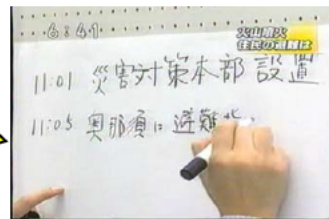 6:41
火山噴火
住民の避難は
11:01 災害対策本部設置
11:05 奥那須に避難